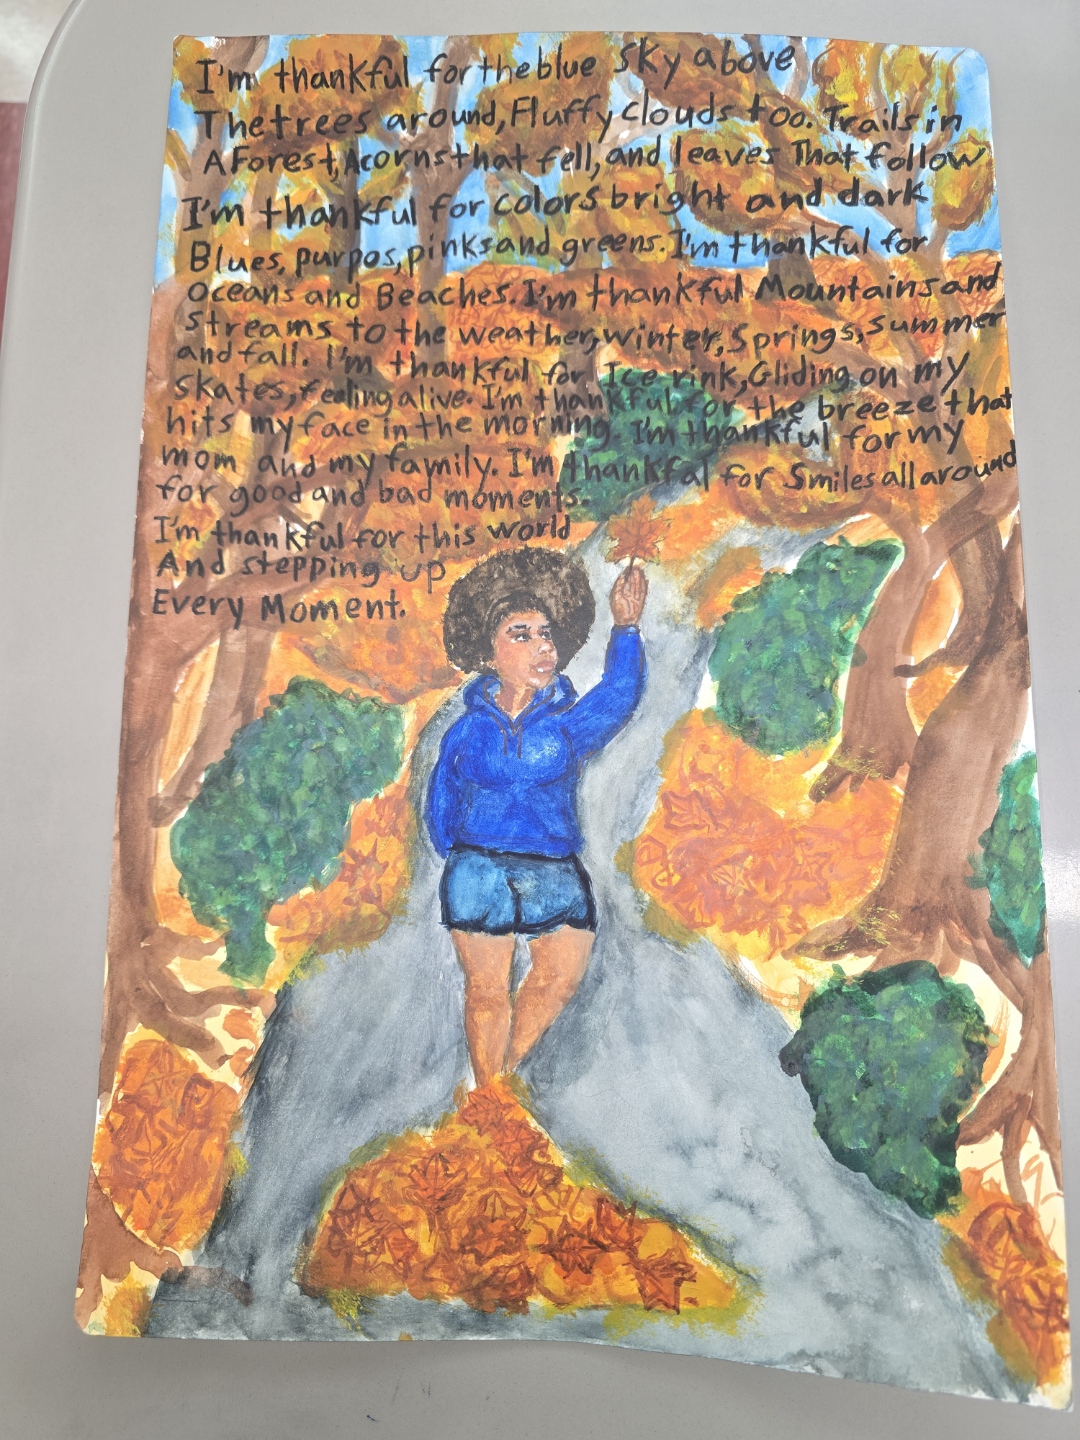 I'm thankful for the blue sky above
The trees around, Fluffy clouds too. Trails in
A Forest, Acorns that fell, and leaves That follow
I'm thankful for colors bright and dark
Blues, purpos, pinks and greens. I'm thankful for
Oceans and Beaches. I'm thankful Mountains and
Streams to the weather, winter, Springs, Summer
and fall. I'm thankful for Ice rink, Gliding on my
Skates, feeling alive. I'm thankful for the breeze that
hits my face in the morning. I'm thankful for my
mom and my family. I'm thankful for Smiles all around
for good and bad moments.
I'm thankful for this world
And stepping up
Every Moment.